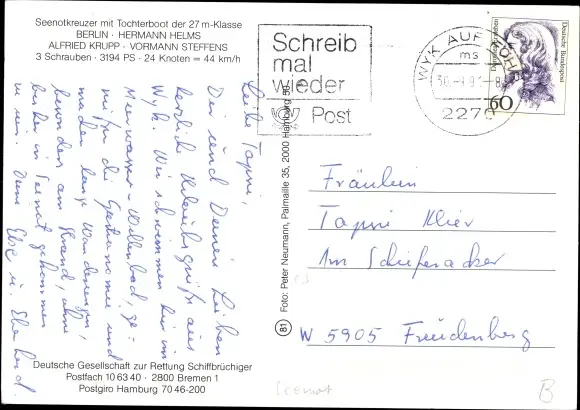 Seenotkreuzer mit Tochterboot der 27 m-Klasse
BERLIN · HERMANN HELMS
ALFRIED KRUPP · VORMANN STEFFENS
3 Schrauben · 3194 PS · 24 Knoten = 44 km/h
Schreib
mal
wieder
Post
WYK AUF FÖHR
ms
2270
Deutsche Bundespost
60
Liebe Tapsi,
Dir und Deinen Lieben
herzliche Urlaubsgrüße aus
Wyk. Wir schwimmen hier im
Meerwasser-Wellenbad, ge-
nießen die Gastronomie und
machen lange Wanderungen,
besonders am Strand, ohne
bisher in Seenot gekommen
zu sein. Deine Else u. Eberhard.
Foto: Peter Neumann, Palmaille 35, 2000 Hamburg 50
81
Fräulein
Tapsi Klier
Im Schieferacker
W 5905 Freudenberg
Deutsche Gesellschaft zur Rettung Schiffbrüchiger
Postfach 10 63 40 · 2800 Bremen 1
Postgiro Hamburg 70 46-200
B